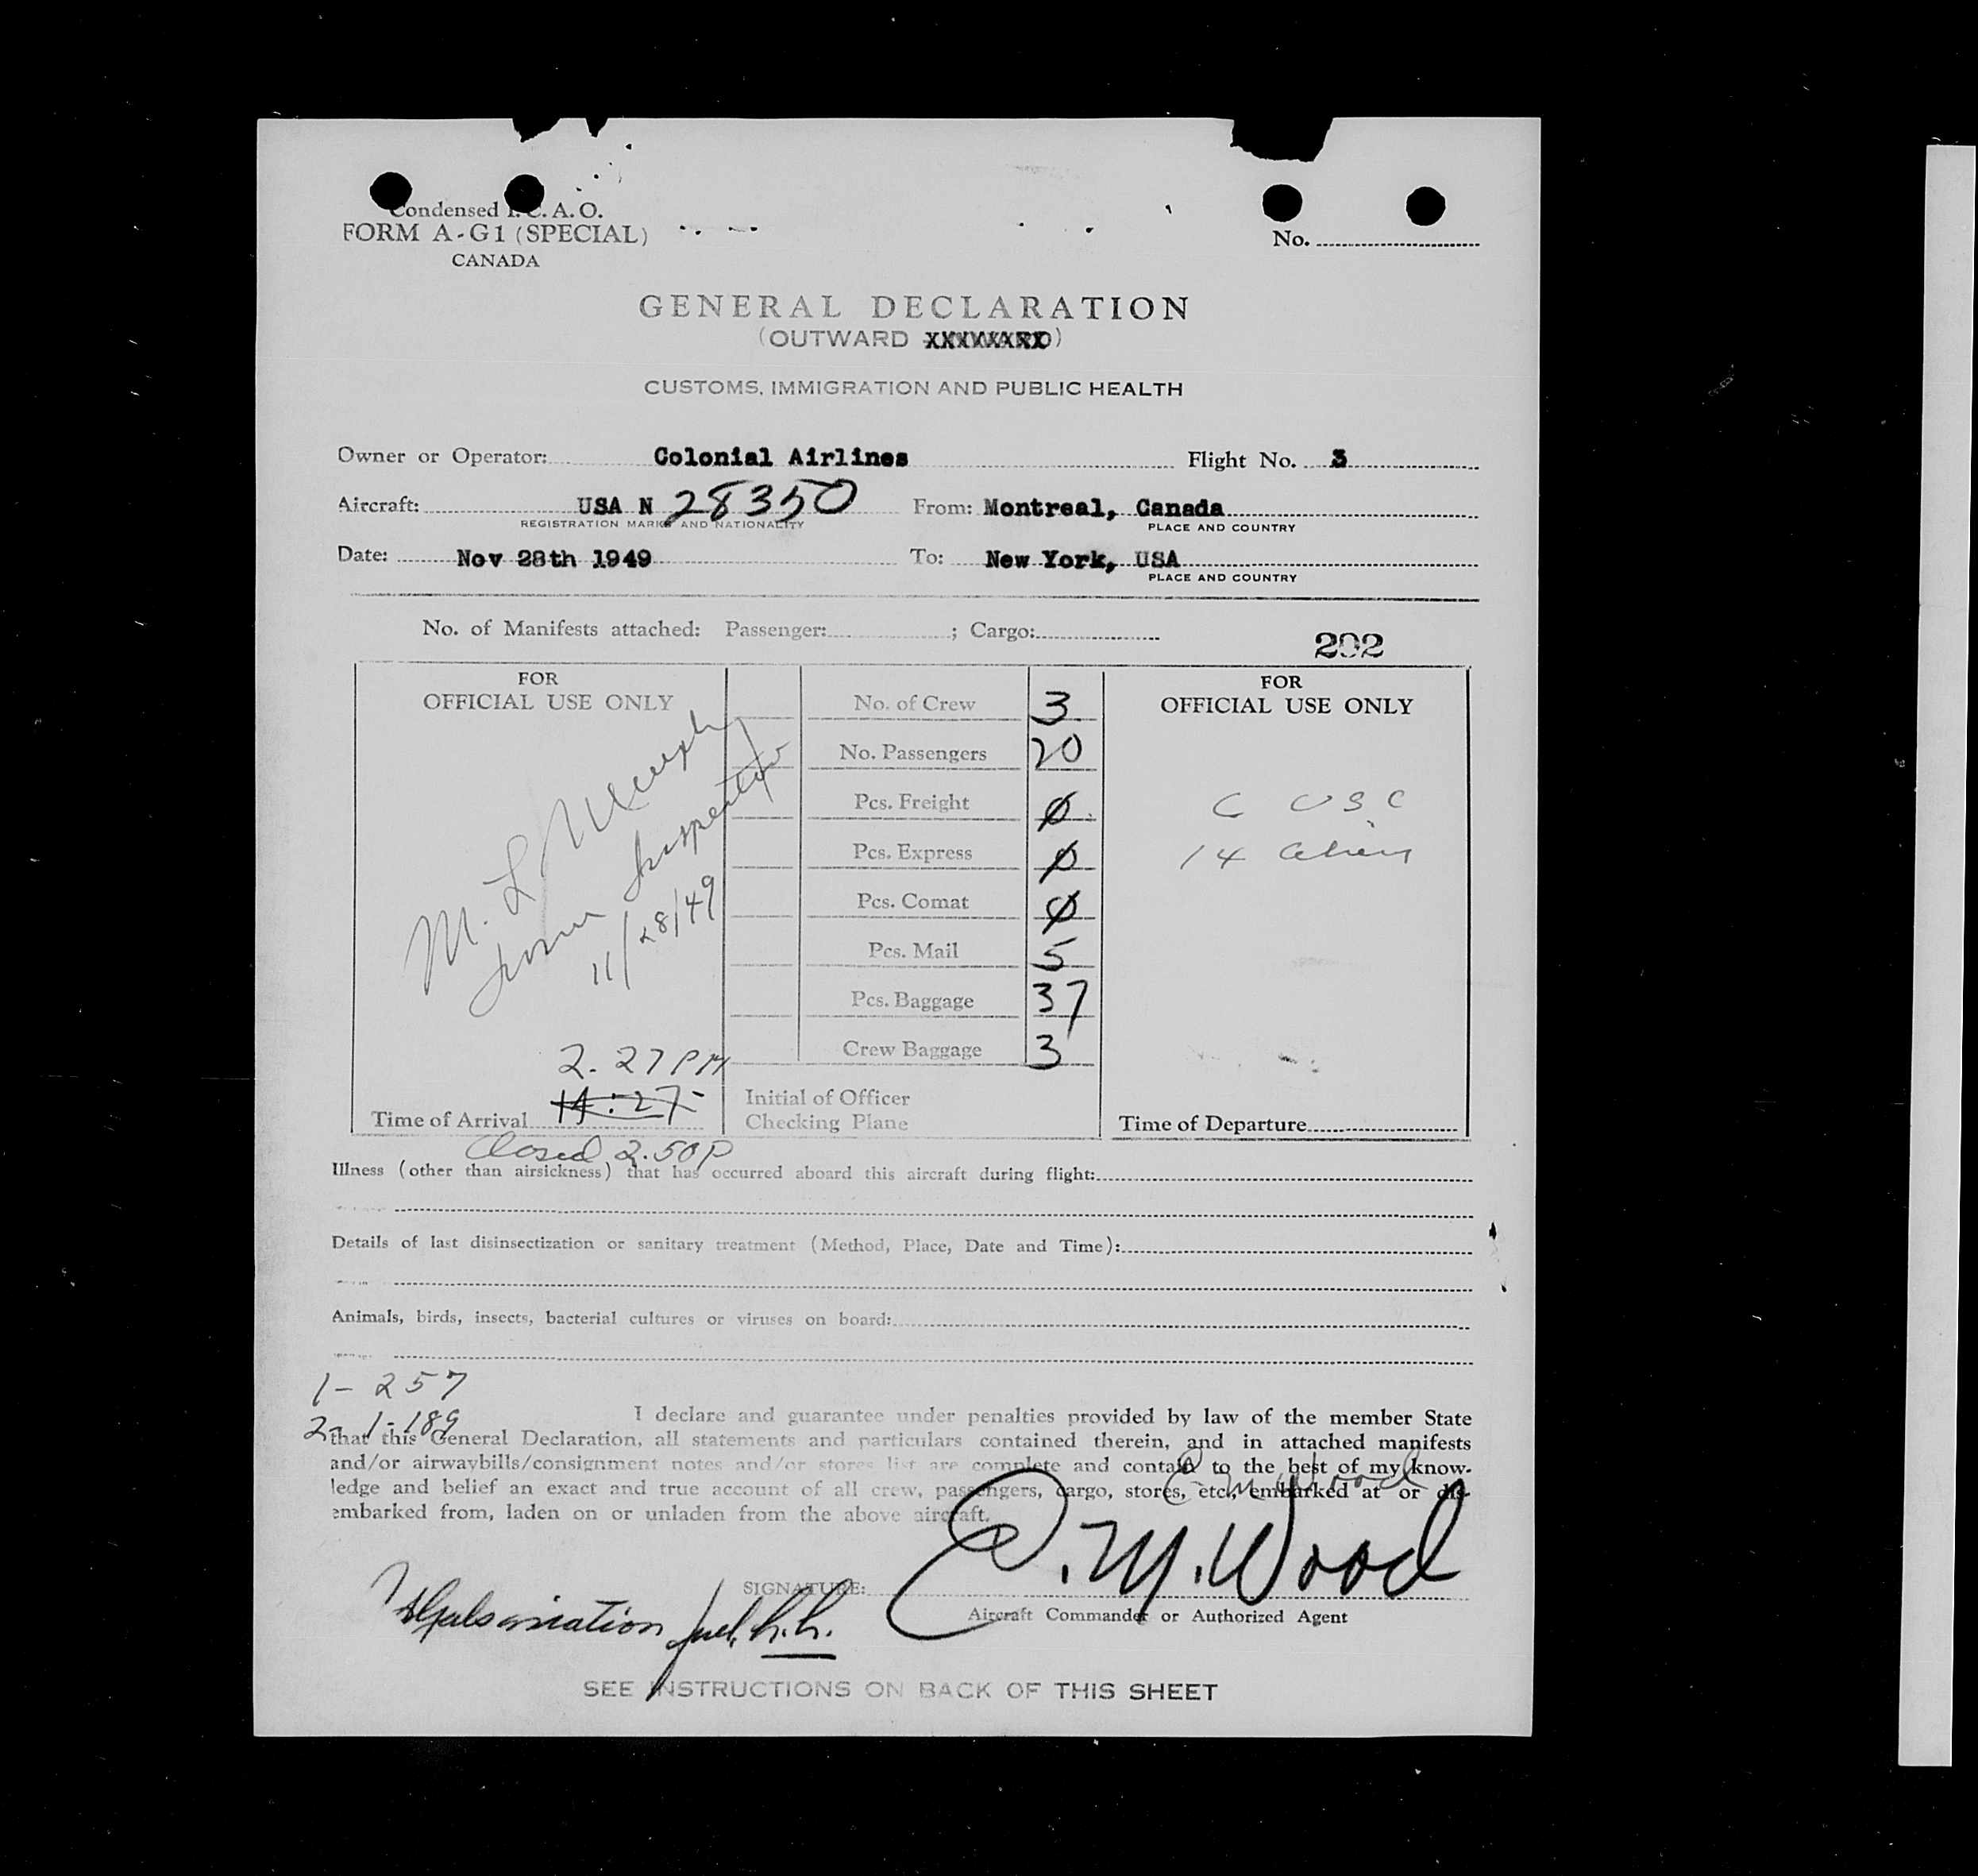 Condensed I. C. A. O.
FORM A-G1 (SPECIAL)
CANADA
No.
GENERAL DECLARATION
(OUTWARD XXXXXXXX)
CUSTOMS, IMMIGRATION AND PUBLIC HEALTH
Owner or Operator: Colonial Airlines Flight No. 3
Aircraft: USA N 28350 From: Montreal, Canada
REGISTRATION MARKS AND NATIONALITY PLACE AND COUNTRY
Date: Nov 28th 1949 To: New York, USA
PLACE AND COUNTRY
No. of Manifests attached: Passenger: ; Cargo:
202
FOR
OFFICIAL USE ONLY
M. L.
11/28/49
2.27 PM
14:27
Time of Arrival
Closed 2.50P
No. of Crew 3
No. Passengers 20
Pcs. Freight 0
Pcs. Express 0
Pcs. Comat 0
Pcs. Mail 5
Pcs. Baggage 37
Crew Baggage 3
Initial of Officer
Checking Plane
FOR
OFFICIAL USE ONLY
USC
14
Time of Departure
Illness (other than airsickness) that has occurred aboard this aircraft during flight:
Details of last disinsectization or sanitary treatment (Method, Place, Date and Time):
Animals, birds, insects, bacterial cultures or viruses on board:
1- 257
2- 1-189
I declare and guarantee under penalties provided by law of the member State
that this General Declaration, all statements and particulars contained therein, and in attached manifests
and/or airwaybills/consignment notes and/or stores list are complete and contain to the best of my know-
ledge and belief an exact and true account of all crew, passengers, cargo, stores, etc., embarked at or dis-
embarked from, laden on or unladen from the above aircraft.
SIGNATURE: E. M. Wood
Aircraft Commander or Authorized Agent
SEE INSTRUCTIONS ON BACK OF THIS SHEET